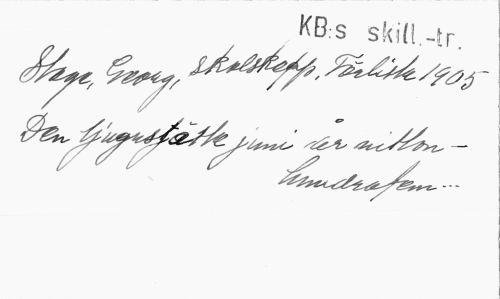 KB:s skill.-tr.
Stage, Georg, skolskepp. Förliste 1905
Den tjugusjätte juni år nitton-
hundrafem...